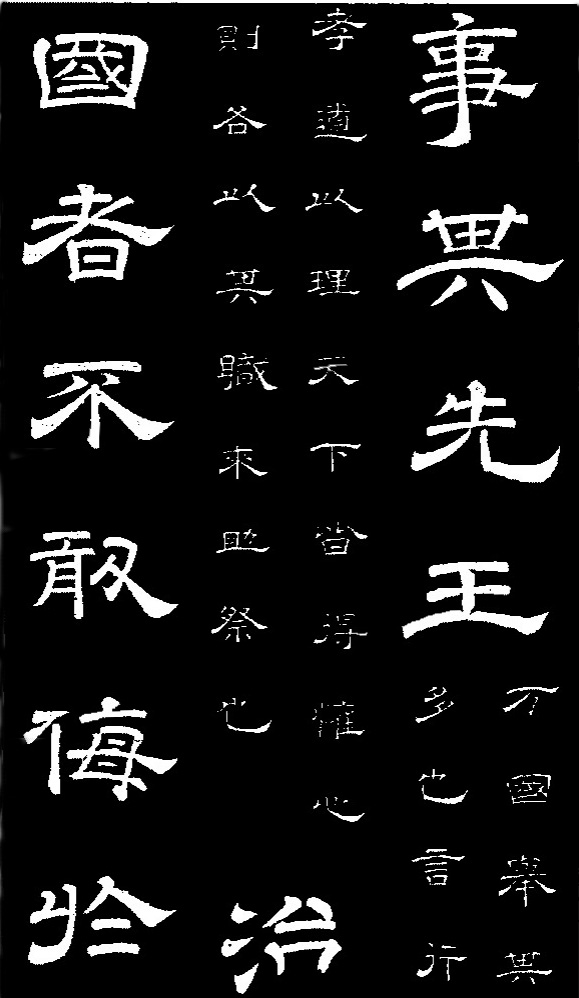 事其先王
万國舉其
多也言行
孝道以理天下皆得懽心
則各以其職來助祭也
治
國者不敢侮於